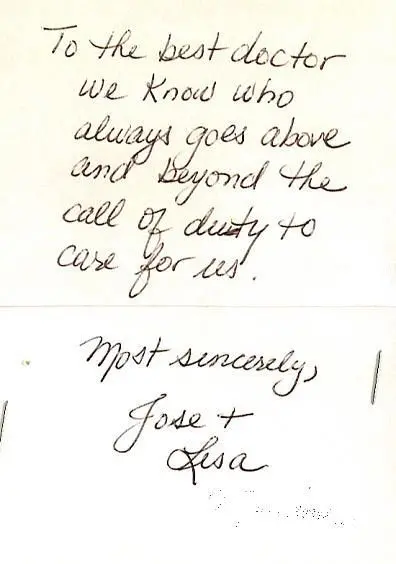 To the best doctor
we know who
always goes above
and beyond the
call of duty to
care for us.
Most sincerely,
Jose +
Lisa